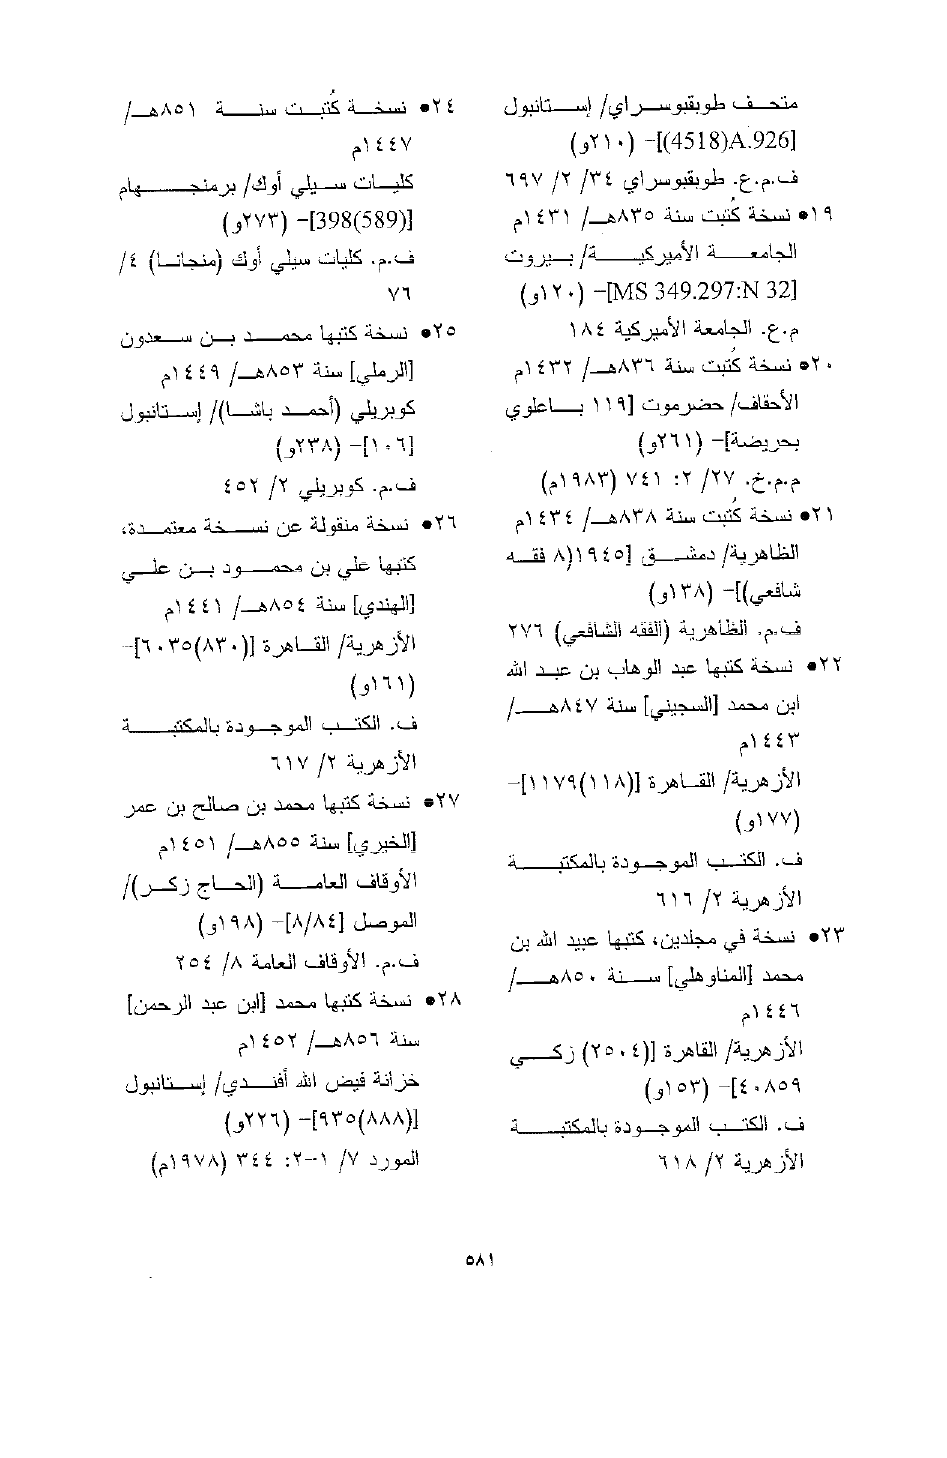 متحف طوبقبوسراي/ إستانبول
[A.926(4518)]- (٢١٠و)
ف.م.ع. طوبقبوسراي ٣٤/ ٢/ ٦٩٧
١٩• نسخة كُتبت سنة ٨٣٥هـ/ ١٤٣١م
الجامعة الأميركية/ بيروت
[MS 349.297:N 32]- (١٢٠و)
م.ع. الجامعة الأميركية ١٨٤
٢٠• نسخة كُتبت سنة ٨٣٦هـ/ ١٤٣٢م
الأحقاف/ حضرموت [١١٩ باعلوي
بحريضة]- (٢٦١و)
م.م.خ. ٢٧/ ٢: ٧٤١ (١٩٨٣م)
٢١• نسخة كُتبت سنة ٨٣٨هـ/ ١٤٣٤م
الظاهرية/ دمشق [١٩٤٥(٨ فقه
شافعي)]- (١٣٨و)
ف.م. الظاهرية (الفقه الشافعي) ٢٧٦
٢٢• نسخة كتبها عبد الوهاب بن عبد الله
ابن محمد [السجيني] سنة ٨٤٧هـ/
١٤٤٣م
الأزهرية/ القاهرة [(١١٨)١١٧٩]-
(١٧٧و)
ف. الكتب الموجودة بالمكتبة
الأزهرية ٢/ ٦١٦
٢٣• نسخة في مجلدين، كتبها عبيد الله بن
محمد [المناوهلي] سنة ٨٥٠هـ/
١٤٤٦م
الأزهرية/ القاهرة [(٢٥٠٤) زكي
٤٠٨٥٩]- (١٥٣و)
ف. الكتب الموجودة بالمكتبة
الأزهرية ٢/ ٦١٨
٢٤• نسخة كُتبت سنة ٨٥١هـ/
١٤٤٧م
كليات سيلي أوك/ برمنجهام
[398(589)]- (٢٧٣و)
ف.م. كليات سيلي أوك (منجانا) ٤/
٧٦
٢٥• نسخة كتبها محمد بن سعدون
[الرملي] سنة ٨٥٣هـ/ ١٤٤٩م
كوبريلي (أحمد باشا)/ إستانبول
[١٠٦]- (٢٣٨و)
ف.م. كوبريلي ٢/ ٤٥٢
٢٦• نسخة منقولة عن نسخة معتمدة،
كتبها علي بن محمود بن علي
[الهندي] سنة ٨٥٤هـ/ ١٤٤١م
الأزهرية/ القاهرة [(٨٣٠)٦٠٣٥]-
(١٦١و)
ف. الكتب الموجودة بالمكتبة
الأزهرية ٢/ ٦١٧
٢٧• نسخة كتبها محمد بن صالح بن عمر
[الخيري] سنة ٨٥٥هـ/ ١٤٥١م
الأوقاف العامة (الحاج زكر)/
الموصل [٨/٨٤]- (١٩٨و)
ف.م. الأوقاف العامة ٨/ ٢٥٤
٢٨• نسخة كتبها محمد [ابن عبد الرحمن]
سنة ٨٥٦هـ/ ١٤٥٢م
خزانة فيض الله أفندي/ إستانبول
[(٨٨٨)٩٣٥]- (٢٢٦و)
المورد ٧/ ١-٢: ٣٤٤ (١٩٧٨م)
٥٨١